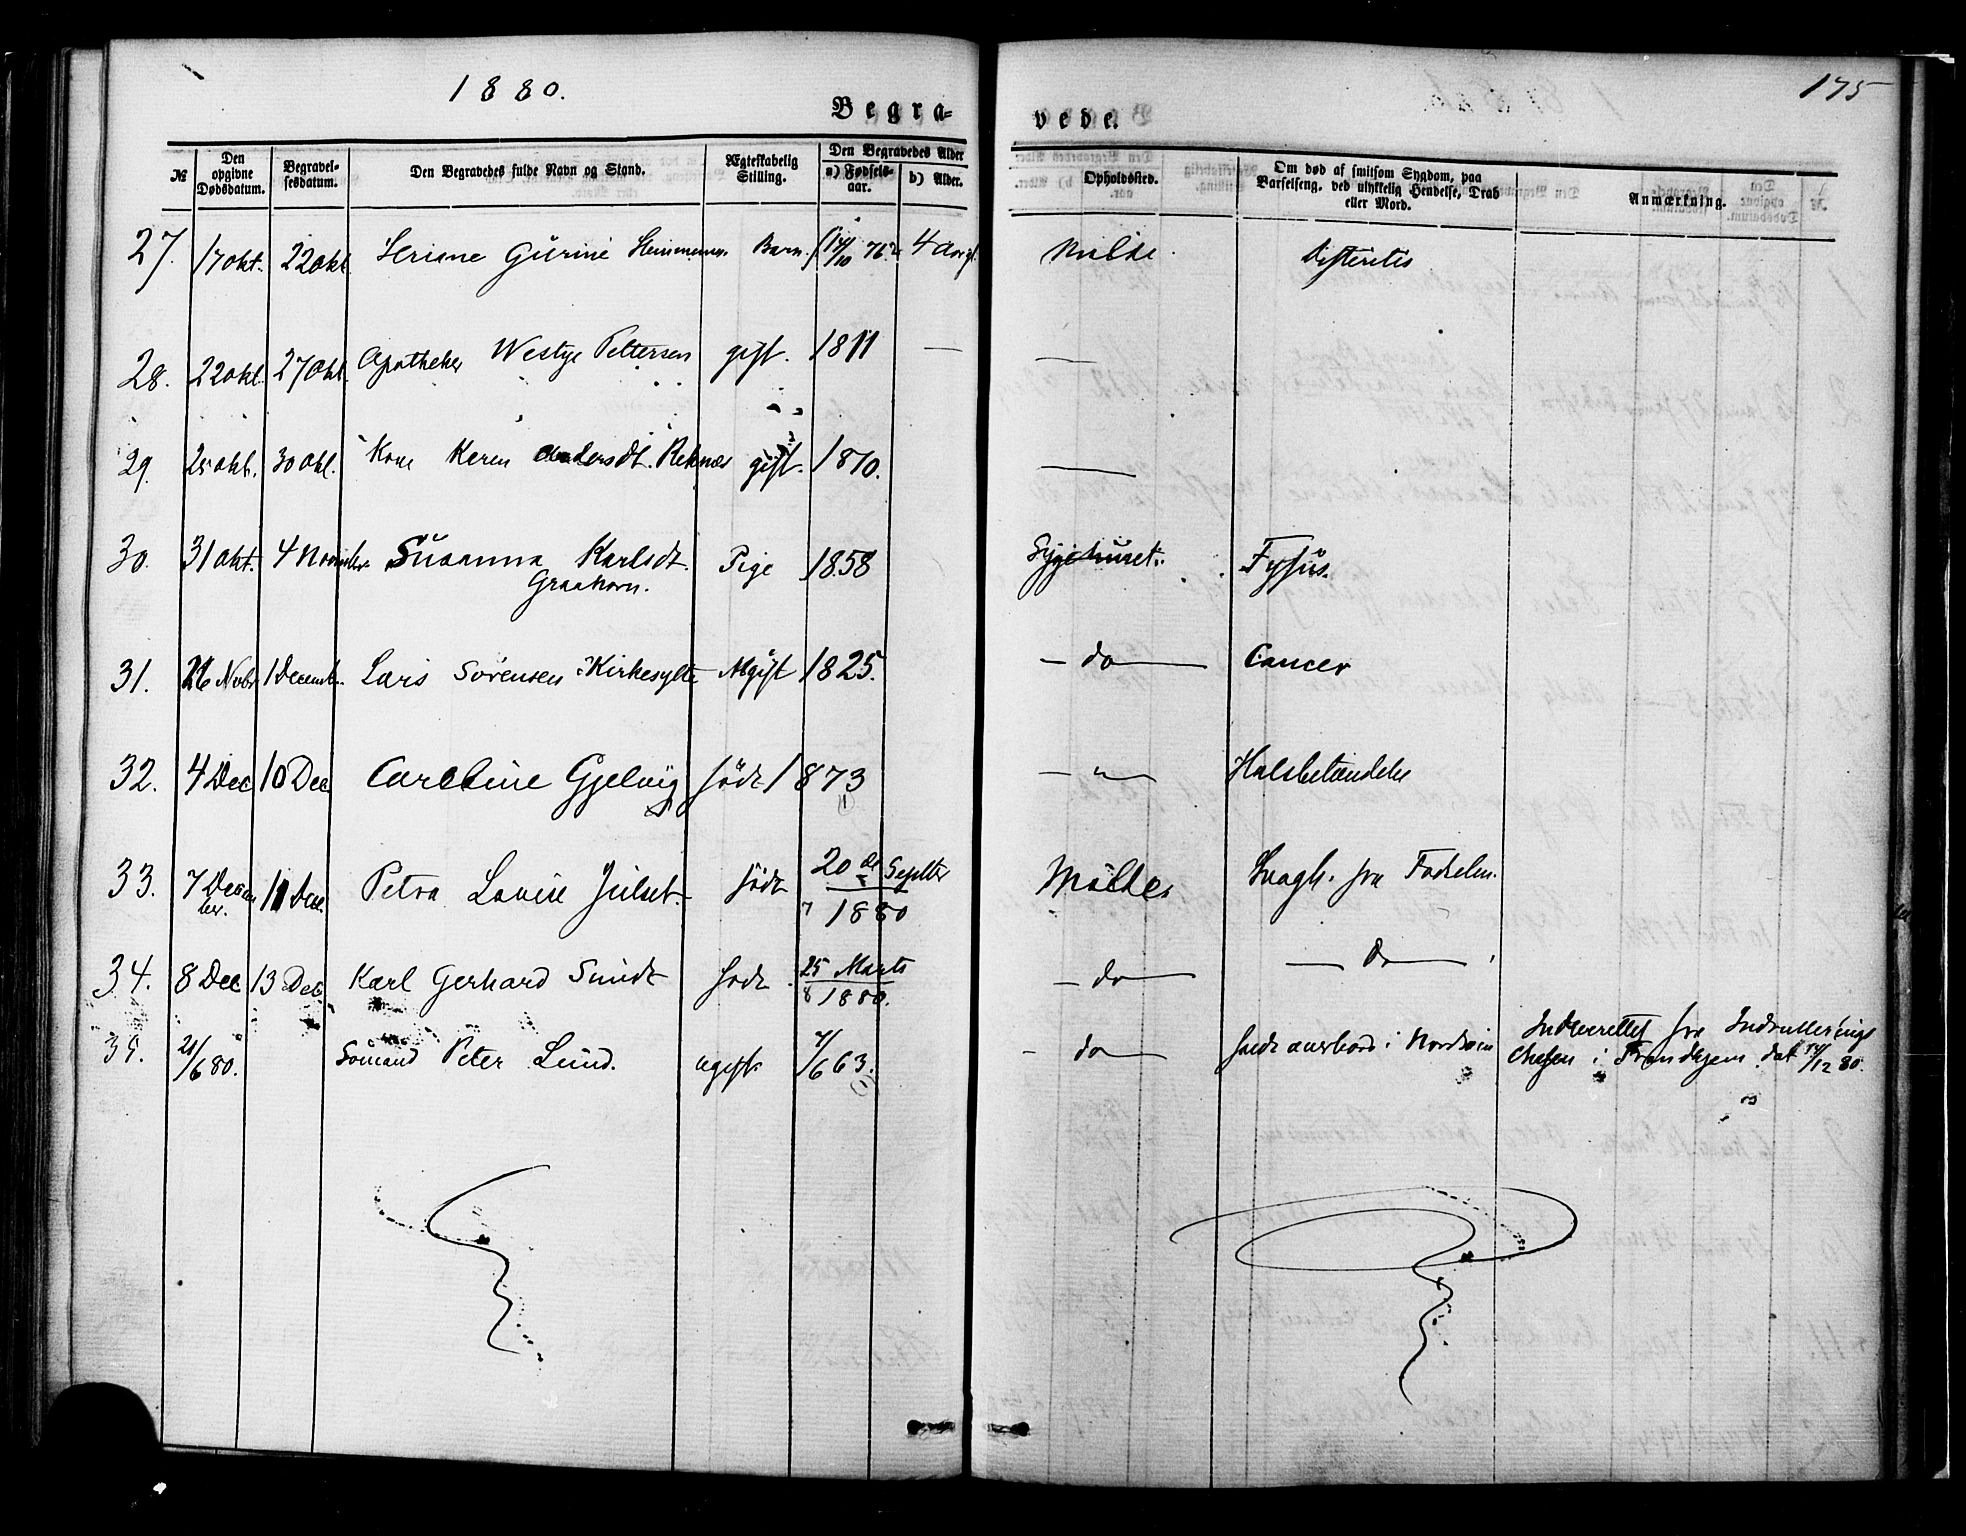 1880.
175
Begra=
vede.
№
Den opgivne Dødsdatum.
Begravel-sesdatum.
Den Begravedes fulde Navn og Stand.
Ægteskabelig Stilling.
Den Begravedes Alder
a) Fødsels-aar.
b) Alder.
Opholdssted.
Om død af smitsom Sygdom, paa Barselseng, ved ulykkelig Hendelse, Drab eller Mord.
Anmærkning.
27. 17 Okt. 22 Okt. Gurine Barn 4 Molde. Difteritis
28. 22 Okt. 27 Okt. Apotheker Westye Pettersen gift. 1811 — —
29. 25 Okt. 30 Okt. Kone Karen Andersdt. Reknæs gift. 1810. —
30. 31 Okt. 4 November Susanna Karlsdt. Pige 1858 Sygehuset. Tyfus.
Graahorn.
31. 26 Novbr 1 Decemb. Lars Sørensen Kirkesylte Ugift 1825. — do — Cancer
32. 4 Dec 10 Dec Caroline Gjelvig född 1873 — " — Halsbetændelse
33. 7 Decem 11 Dec. Petra Lovise Julset född 20 de Septbr Molde. Svagh. fra Fødselen.
ber. 1880
34. 8 Dec 13 Dec Karl Gerhard Smidt född 25 Marts — do — — Do —
1880.
35. 21/6 80. Sömand Peter Lund. ugift 7/6 63. — do — faldt overbord i Nordsöen Indberettet fra Indrullerings
Chefen i Trondhjem dat. 14/12 80.